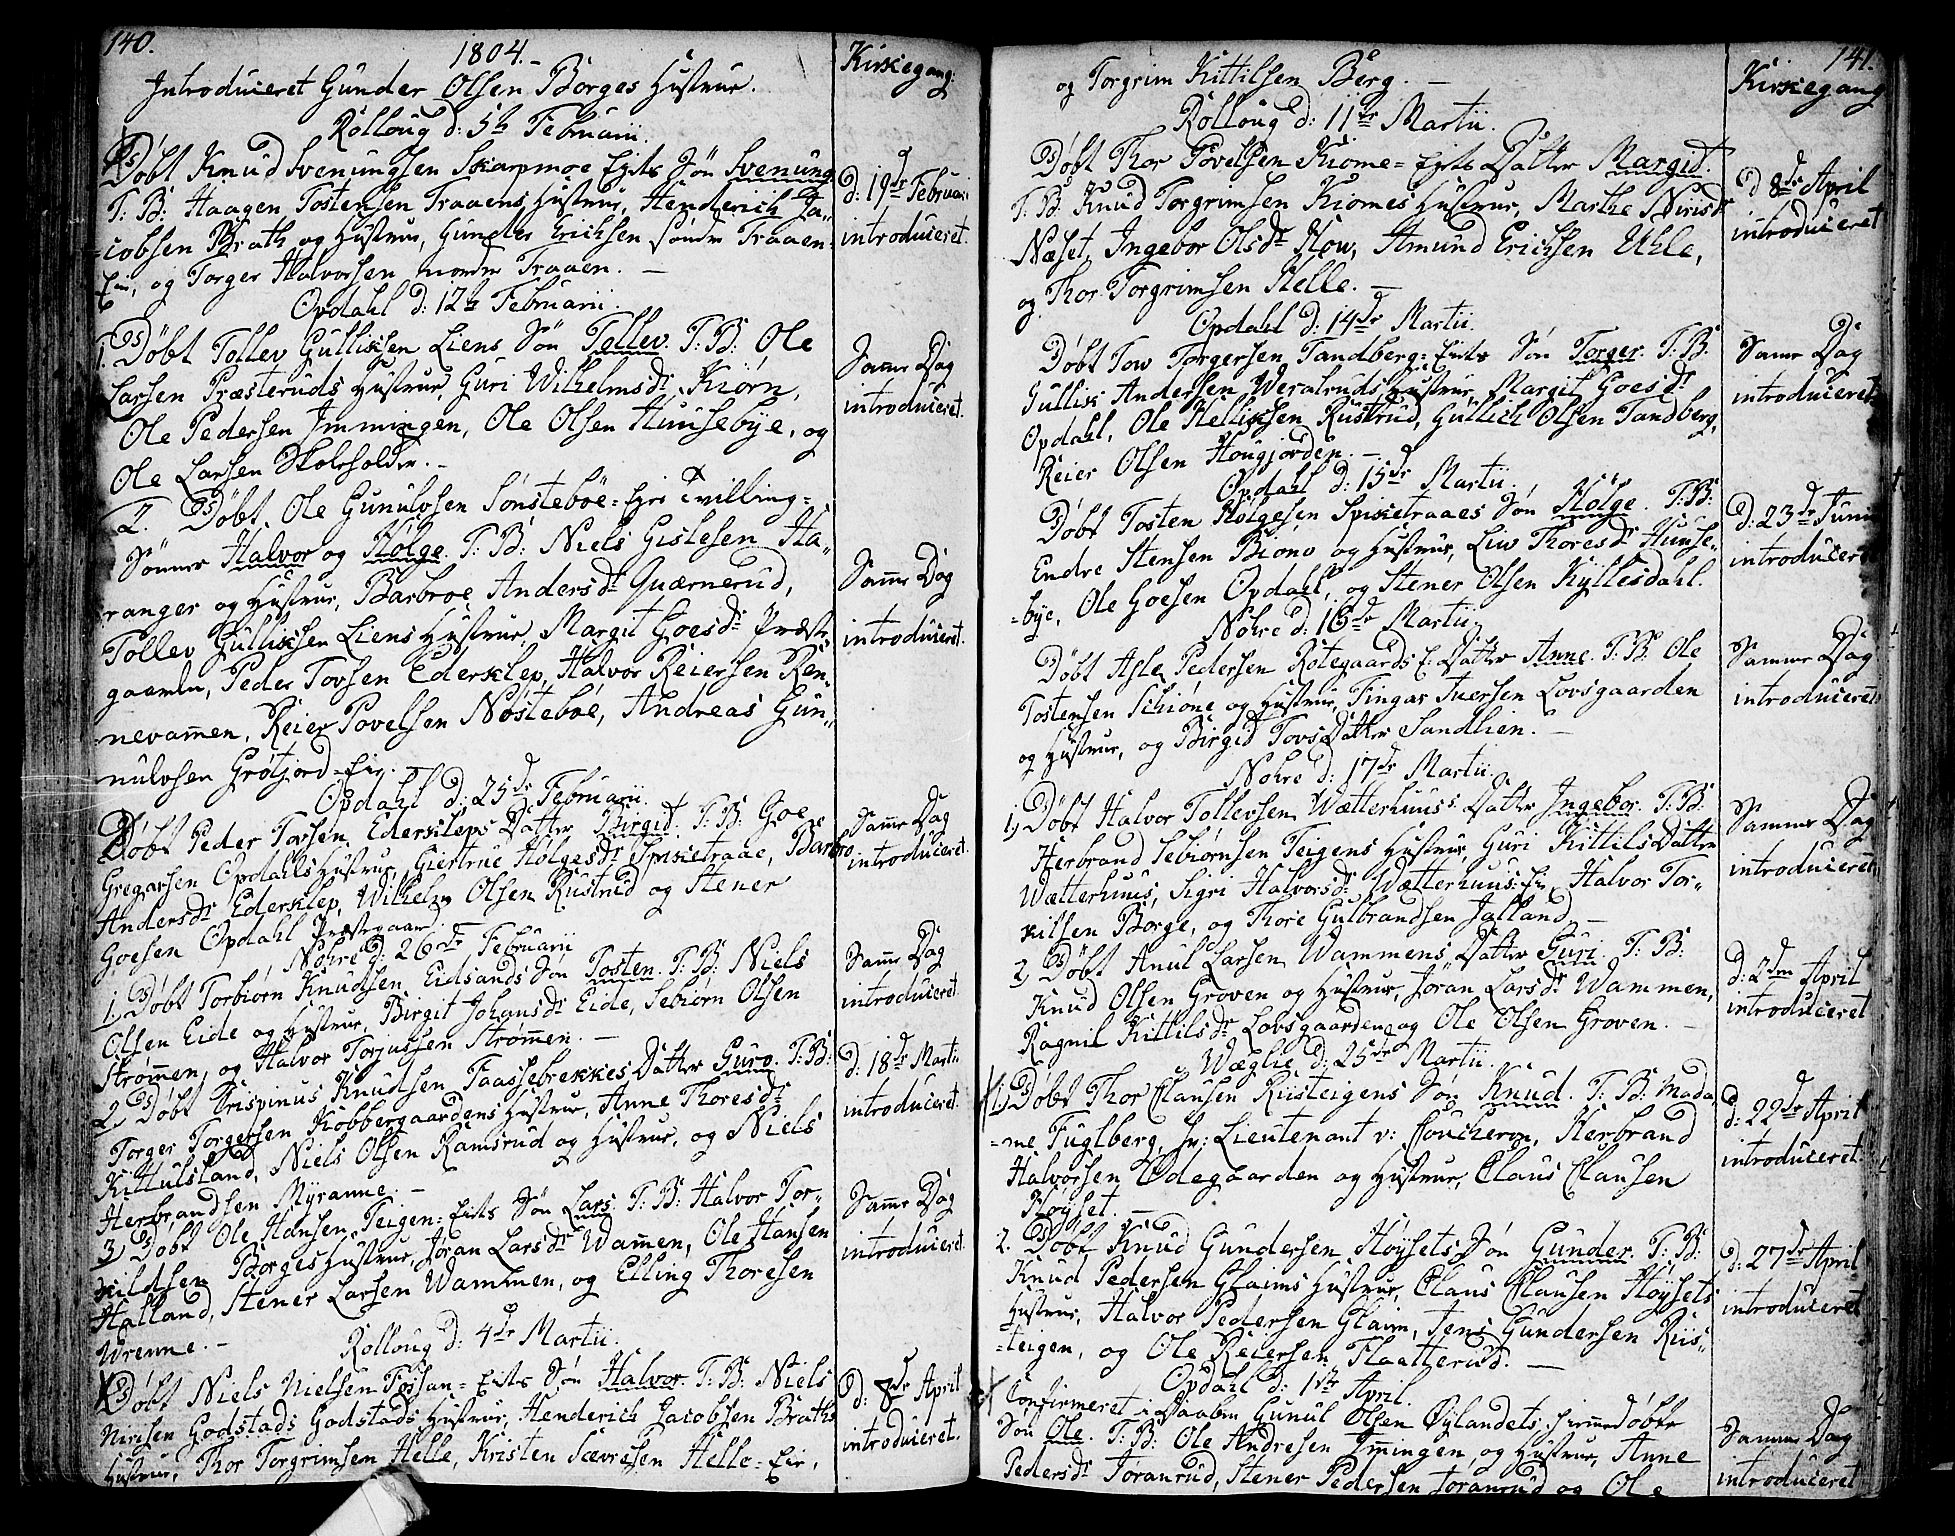 140.
1804.-
Kirkegang.
Introduceret Gunder Olsen Borges Hustrue.
Rolloug d: 5te Februarii.
Døbt Knud Svenungsen Skarpmoe Eiets Søn Svenung.
T: B: Haagen Tostensen Traaens Hustrue, Henderich Ja-
cobsen Brath og Hustrue, Gunder Erichsen søndre Traaen-
Eie, og Torger Halvorsen nordre Traaen. -
d: 19de Februarii
introduceret.
Opdahl d: 12te Februarii.
1. Døbt Tollev Gulliksen Liens Søn Tollev. T: B: Ole
Larsen Præsteruds Hustrue, Guri Wilhelmsdr Kiørn,
Ole Pedersen Immingen, Ole Olsen Huusebye, og
Ole Larsen Skoleholder. -
Samme Dag
introduceret.
2. Døbt Ole Gunulvsen Sønsteböe-Eies Tvilling-
Sønner Halvor og Hølge. T: B: Niels Gislesen Ha-
ranger og Hustrue, Barbroe Andersdr Quærnerud,
Tollev Gulliksen Liens Hustrue, Margit Goesdr Præste-
gaarden, Peder Tovsen Ederklep, Halvor Reiersen Ren-
nevammen, Reier Povelsen Nøsteböe, Andreas Gun-
nulvsen Grøtjord-Eie. -
Samme Dag
introduceret.
Opdahl d: 25de Februarii.
Døbt Peder Tovsen Ederkleps Datter Birgit. T: B: Goe
Gregarsen Opdahls Hustrue, Giertrue Hølgesdr Spiketraae, Barbro
Andersdr Ederklep, Wilhelm Olsen Rustrud og Stener
Goesen Opdahl Præstegaard.
Samme Dag
introduceret.
Nohre d: 26de Februarii
1, Døbt Torbiørn Knudsen Eidsands Søn Tosten. T: B: Niels
Olsen Eide og Hustrue, Birgit Johansdr Eide, Sebiørn Olsen
Strømmen, og Halvor Torjussen Strømmen. -
Samme Dag
introduceret.
2, Døbt Crispinus Knudsen Faassebrekkes Datter Guro. T: B:
Torger Torgersen Kobbergaardens Hustrue, Anne Thoresdr
Kittulsland, Niels Olsen Ramsrud og Hustrue, og Niels
Herbrandsen Myranne. -
d: 18de Martii
introduceret.
3, Døbt Ole Hansen Teigen-Eiets Søn Lars. T: B: Halvor Tor-
kildsen Borges Hustrue, Jøran Larsdr Wammen, Ole Hansen
Halland, Stener Larsen Wammen, og Elling Thoresen
Wrenne. -
Samme Dag
introduceret.
Rolloug d: 4de Martii.
Døbt Niels Nielsen Fossan-Eiets Søn Halvor. T: B: Niels
Nirisen Godstads Hustrue, Henderich Jacobsen Braths
Hustrue, Thor Torgrimsen Helle, Kristen Sævresen Helle-Eie,
d: 8de April
introduceret.
141.
Kirkegang
og Torgrim Kittilsen Berg. -
Rolloug d: 11te Martii.
Døbt Thor Povelsen Kiome-Eiets Datter Margit.
T: B: Knud Torgrimsen Kiomes Hustrue, Marthe Nirisdr
Næset, Ingebor Olsdr How, Amund Erichsen Uhle,
og Thor Torgrimsen Helle. -
d 8de April
introduceret
Opdahl d: 14de Martii.
Døbt Tow Torgersen Tandberg-Eiets Søn Torger. T: B:
Gullik Andersen Weraleruds Hustrue, Margit Goesdr
Opdahl, Ole Helliksen Rustrud, Gullich Olsen Tandberg,
Reier Olsen Hougjorden. -
Samme Dag
introduceret.
Opdahl d: 15de Martii.
Døbt Tosten Hølgesen Spiketraaes Søn Hølge. T: B:
Endre Stensen Biono og Hustrue, Liv Thoresdr Huuse-
bye, Ole Goesen Opdahl, og Stener Olsen Kyllesdahl.
d: 23de Junii
introduceret
Nohre d: 16de Martii,
Døbt Asle Pedersen Rotegaards E: Datter Anne. T: B: Ole
Tostensen Schiöne og Hustrue, Fingar Iversen Lovsgaarden
og Hustrue, og Birgit Tovsdatter Sandlien. -
Samme Dag
introduceret
Nohre d: 17de Martii.
1, Døbt Halvor Tollevsen Wætterhuuss Datter Ingebor. T: B:
Herbrand Sebiørnsen Teigens Hustrue, Guri Kittilsdatter
Wætterhuus, Sigri Halvorsdr Wætterhuus-Eie, Halvor Tor-
kilsen Borge, og Thore Gulbrandsen Jalland. -
Samme Dag
introduceret.
2, Døbt Anul Larsen Wammens Datter Guri. T: B:
Knud Olsen Groven og Hustrue, Jøran Larsdr Wammen,
Ragnil Kittilsdr Lovsgaarden og Ole Olsen Groven. -
d: 2den April
introduceret
Wæglie d: 25de Martii.
1, Døbt Thor Clausen Riisteigens Søn Knud. T: B: Mada-
me Fuglberg, Hr: Lieutenant v: Coucheron, Herbrand
Halvorsen Ødegaarden og Hustrue, Claus Clausen
Høyset. -
d: 22de April
introduceret.
2. Døbt Knud Gundersen Høysets Søn Gunder. T: B:
Knud Pedersen Glaims Hustrue, Claus Clausen Høysets
Hustrue, Halvor Pedersen Glaim, Jens Gundersen Riis-
teigen, og Ole Reiersen Flaatterud. -
d: 27de April
introduceret
Opdahl d: 1ste April.
Confirmeret i Daaben Gunul Olsen Øylandets hiemmedøbte
Søn Ole. T: B: Ole Andresen Immingen og Hustrue, Anne
Pedersdr Joranrud, Stener Pedersen Joranrud og Ole
Samme Dag
introduceret